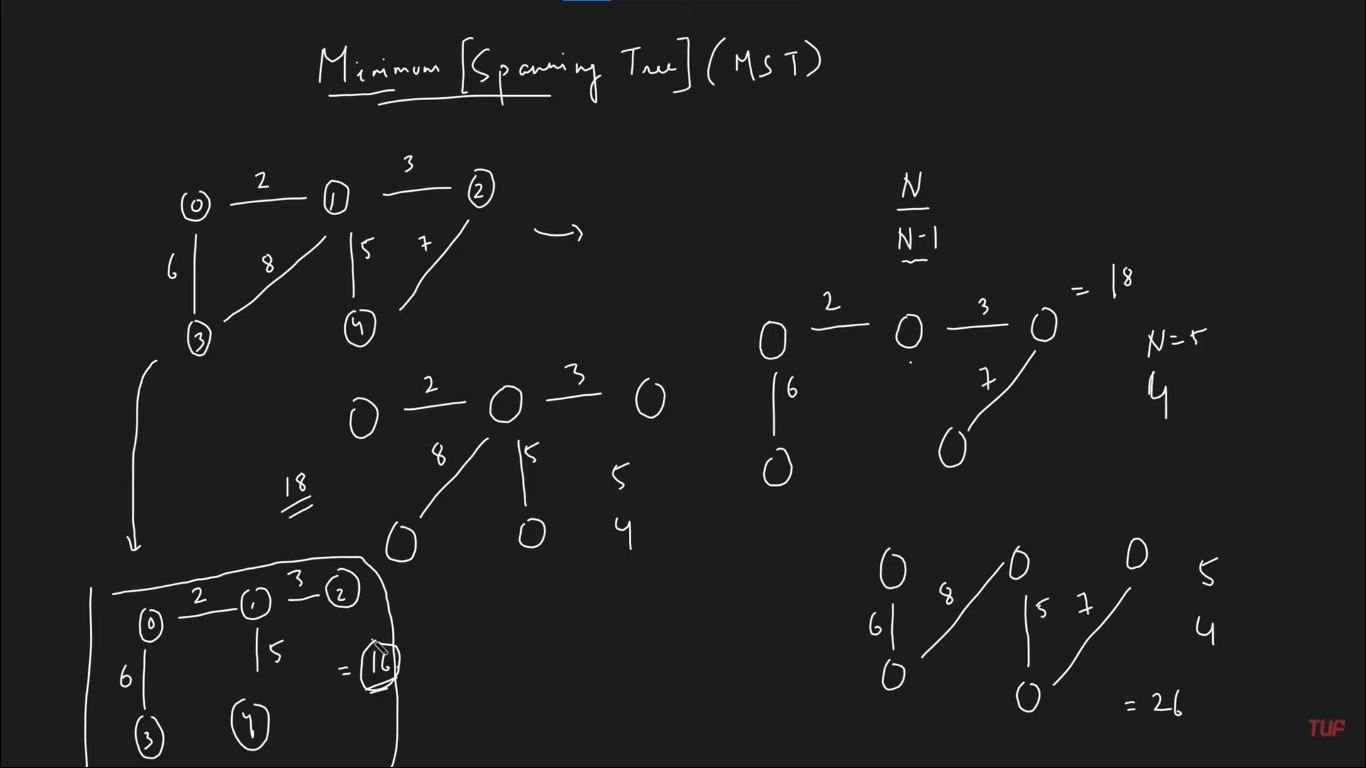 Minimum [Spanning Tree] (MST)
0 2 1 3 2
6 8 5 7
3 4
N
N-1
2 3 = 18
6 7
N=5
4
2 3
8 5
18
5
4
0 2 1 3 2
6 5 = 16
3 4
6 8 5 7
5
4
= 26
TUF